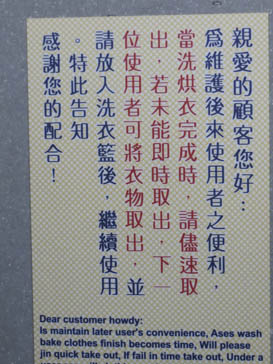 親愛的顧客您好：
為維護後來使用者之便利，
當洗烘衣完成時，請儘速取
出，若未能即時取出，下一
位使用者可將衣物取出，並
請放入洗衣籃後，繼續使用
。特此告知
感謝您的配合！
Dear customer howdy:
Is maintain later user's convenience, Ases wash
bake clothes finish becomes time, Will please
jin quick take out, If fail in time take out, Under a